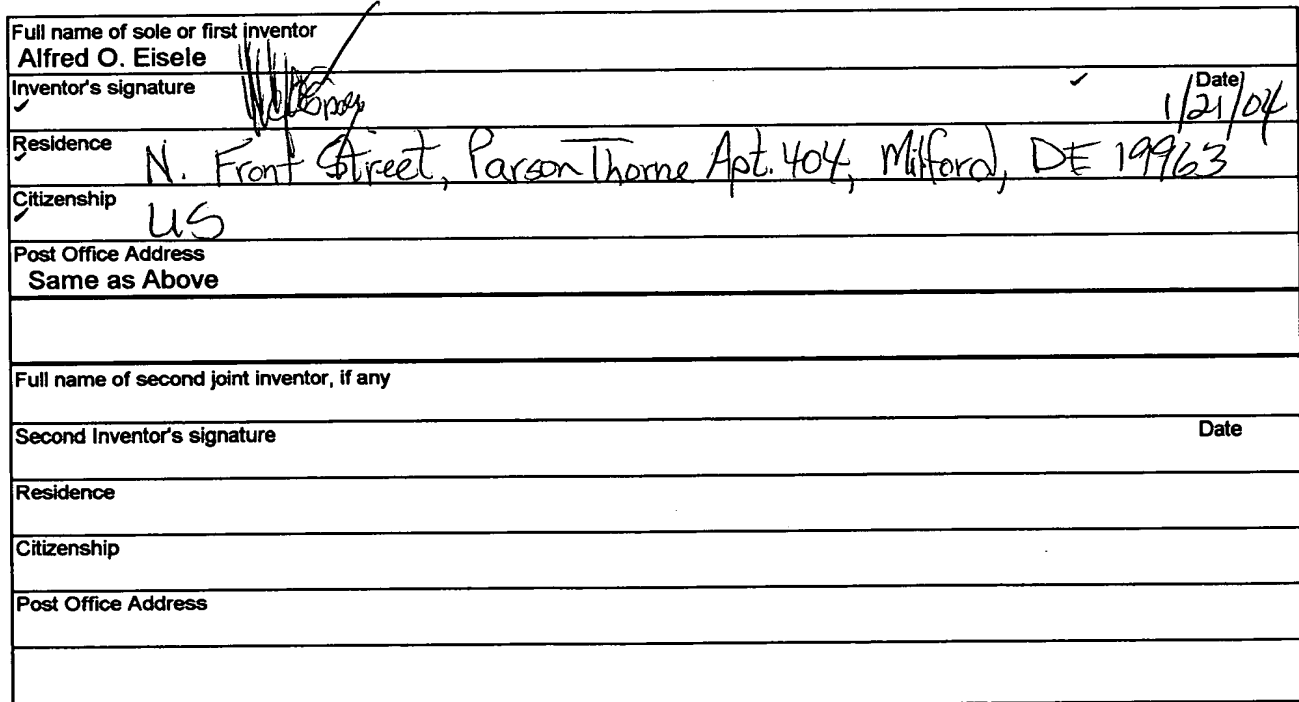 Full name of sole or first inventor
Alfred O. Eisele
Inventor's signature
Date
1/21/04
Residence N. Front Street, Parson Thorne Apt. 404, Milford, DE 19963
Citizenship US
Post Office Address
Same as Above
Full name of second joint inventor, if any
Second Inventor's signature Date
Residence
Citizenship
Post Office Address